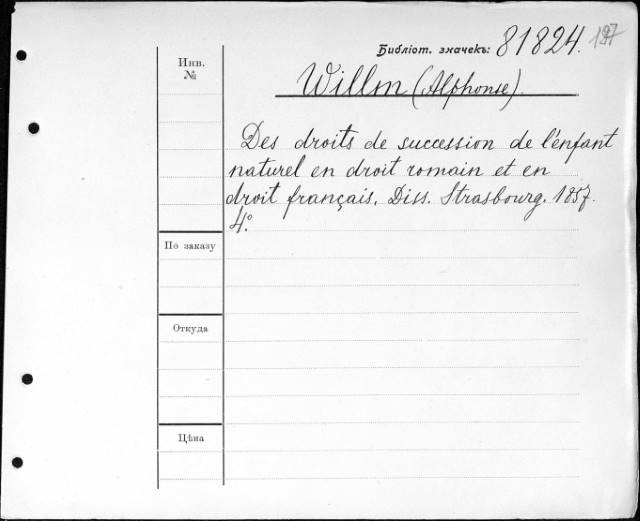 Библіот. значекъ: 81824. 197
Инв.
№
Willm (Alphonse).
Des droits de succession de l'enfant
naturel en droit romain et en
droit français. Diss. Strasbourg. 1857.
4°.
По заказу
Откуда
Цѣна